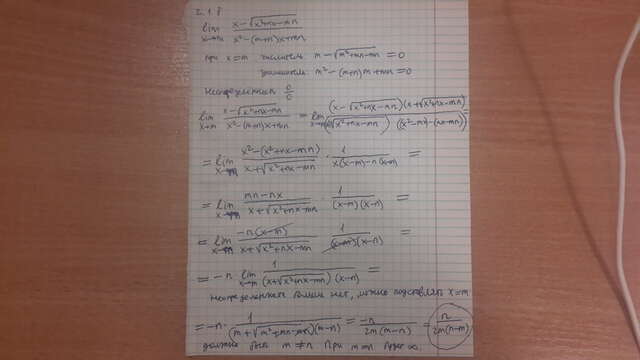 2.1.8
lim x→m (x-√(x²+nx-mn))/(x²-(m+n)x+mn)
при x=m числитель: m-√(m²+mn-mn)=0
знаменатель: m²-(m+n)m+mn=0
Неопределенность 0/0
lim x→m (x-√(x²+nx-mn))/(x²-(m+n)x+mn) = lim x→m (x-√(x²+nx-mn))(x+√(x²+nx-mn))/((x+√(x²+nx-mn))((x²-mx)-(nx-mn))) =
= lim x→m (x²-(x²+nx-mn))/(x+√(x²+nx-mn)) · 1/(x(x-m)-n(x-m)) =
= lim x→m (mn-nx)/(x+√(x²+nx-mn)) · 1/((x-m)(x-n)) =
= lim x→m (-n(x-m))/(x+√(x²+nx-mn)) · 1/((x-m)(x-n)) =
= -n · lim x→m 1/((x+√(x²+nx-mn))(x-n)) =
неопределенности больше нет, можно подставлять x=m
= -n · 1/((m+√(m²+mn-mn))(m-n)) = -n/(2m(m-n)) = n/(2m(n-m))
должно быть m≠n При m=n будет ∞